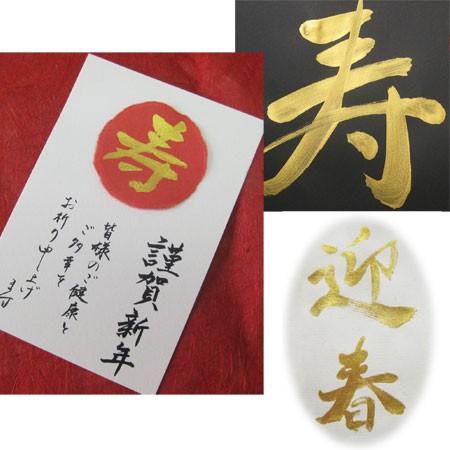 寿
謹賀新年
皆様のご健康と
ご多幸を
お祈り申し上げ
ます
寿
迎
春